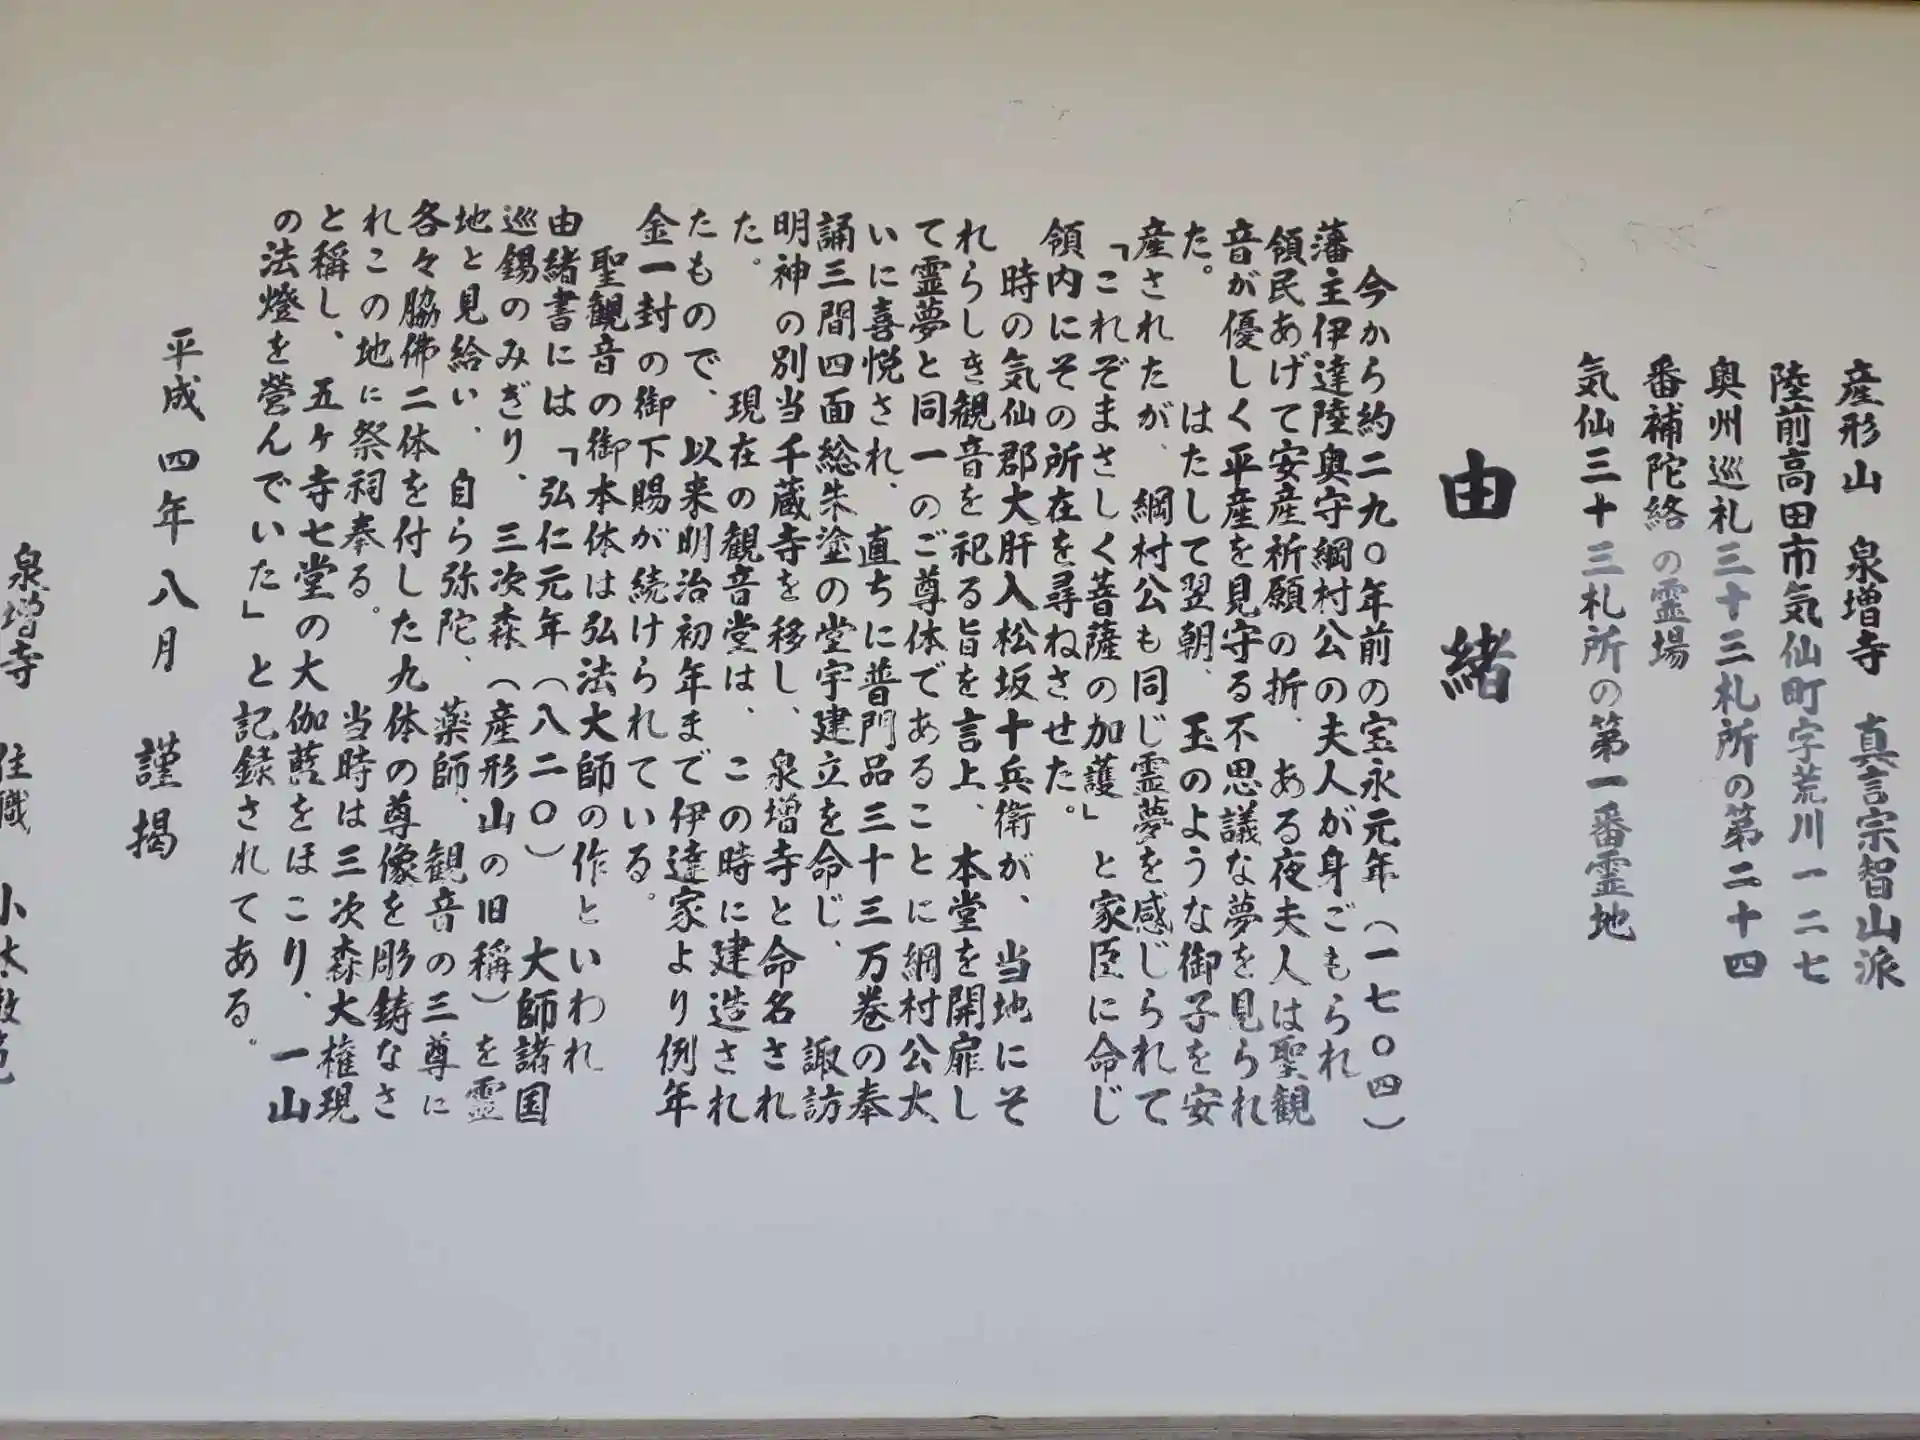 産形山　泉増寺　真言宗智山派
陸前高田市気仙町字荒川一二七
奥州巡礼三十三札所の第二十四
番補陀絡の霊場
気仙三十三札所の第一番霊地
由緒
今から約二九〇年前の宝永元年（一七〇四）
藩主伊達陸奥守綱村公の夫人が身ごもられ
領民あげて安産祈願の折、ある夜夫人は聖観
音が優しく平産を見守る不思議な夢を見られ
た。　はたして翌朝、玉のような御子を安
産されたが、綱村公も同じ霊夢を感じられて
「これぞまさしく菩薩の加護」と家臣に命じ
領内にその所在を尋ねさせた。
時の気仙郡大肝入松坂十兵衛が、当地にそ
れらしき観音を祀る旨を言上、本堂を開扉し
て霊夢と同一のご尊体であることに綱村公大
いに喜悦され、直ちに普門品三十三万巻の奉
誦三間四面総朱塗の堂宇建立を命じ、諏訪
明神の別当千蔵寺を移し、泉増寺と命名され
た。　現在の観音堂は、この時に建造され
たもので、以来明治初年まで伊達家より例年
金一封の御下賜が続けられている。
聖観音の御本体は弘法大師の作といわれ
由緒書には「弘仁元年（八二〇）　大師諸国
巡錫のみぎり、三次森（産形山の旧稱）を霊
地と見給い、自ら弥陀、薬師、観音の三尊に
各々脇佛二体を付した九体の尊像を彫鋳なさ
れこの地に祭祠奉る。　当時は三次森大権現
と稱し、五ヶ寺七堂の大伽藍をほこり、一山
の法燈を営んでいた」と記録されてある。
平成四年八月　謹掲
泉増寺　住職　小林